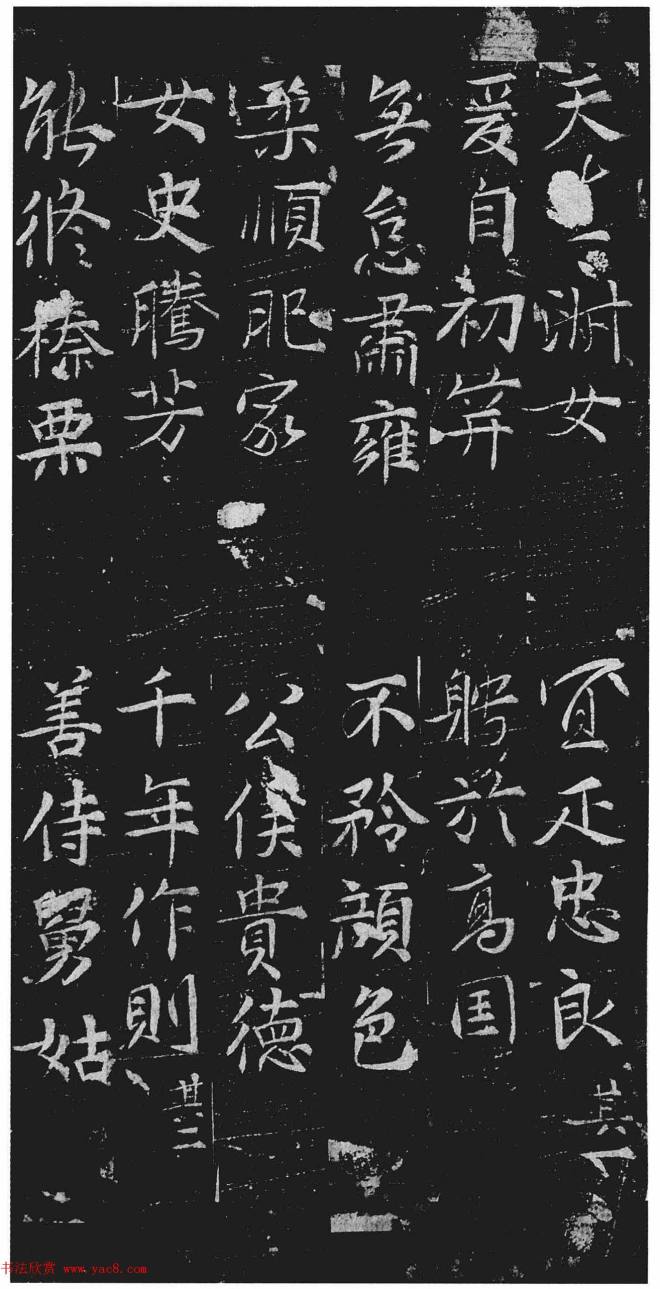 天生淑女 宜疋忠良 其一
爰自初笄 聘於高囯
無怠肅雍 不矜顔色
柔順肥家 公侯貴德
女史騰芳 千年作則 其二
能脩榛栗 善侍舅姑
书法欣赏 www.yac8.com